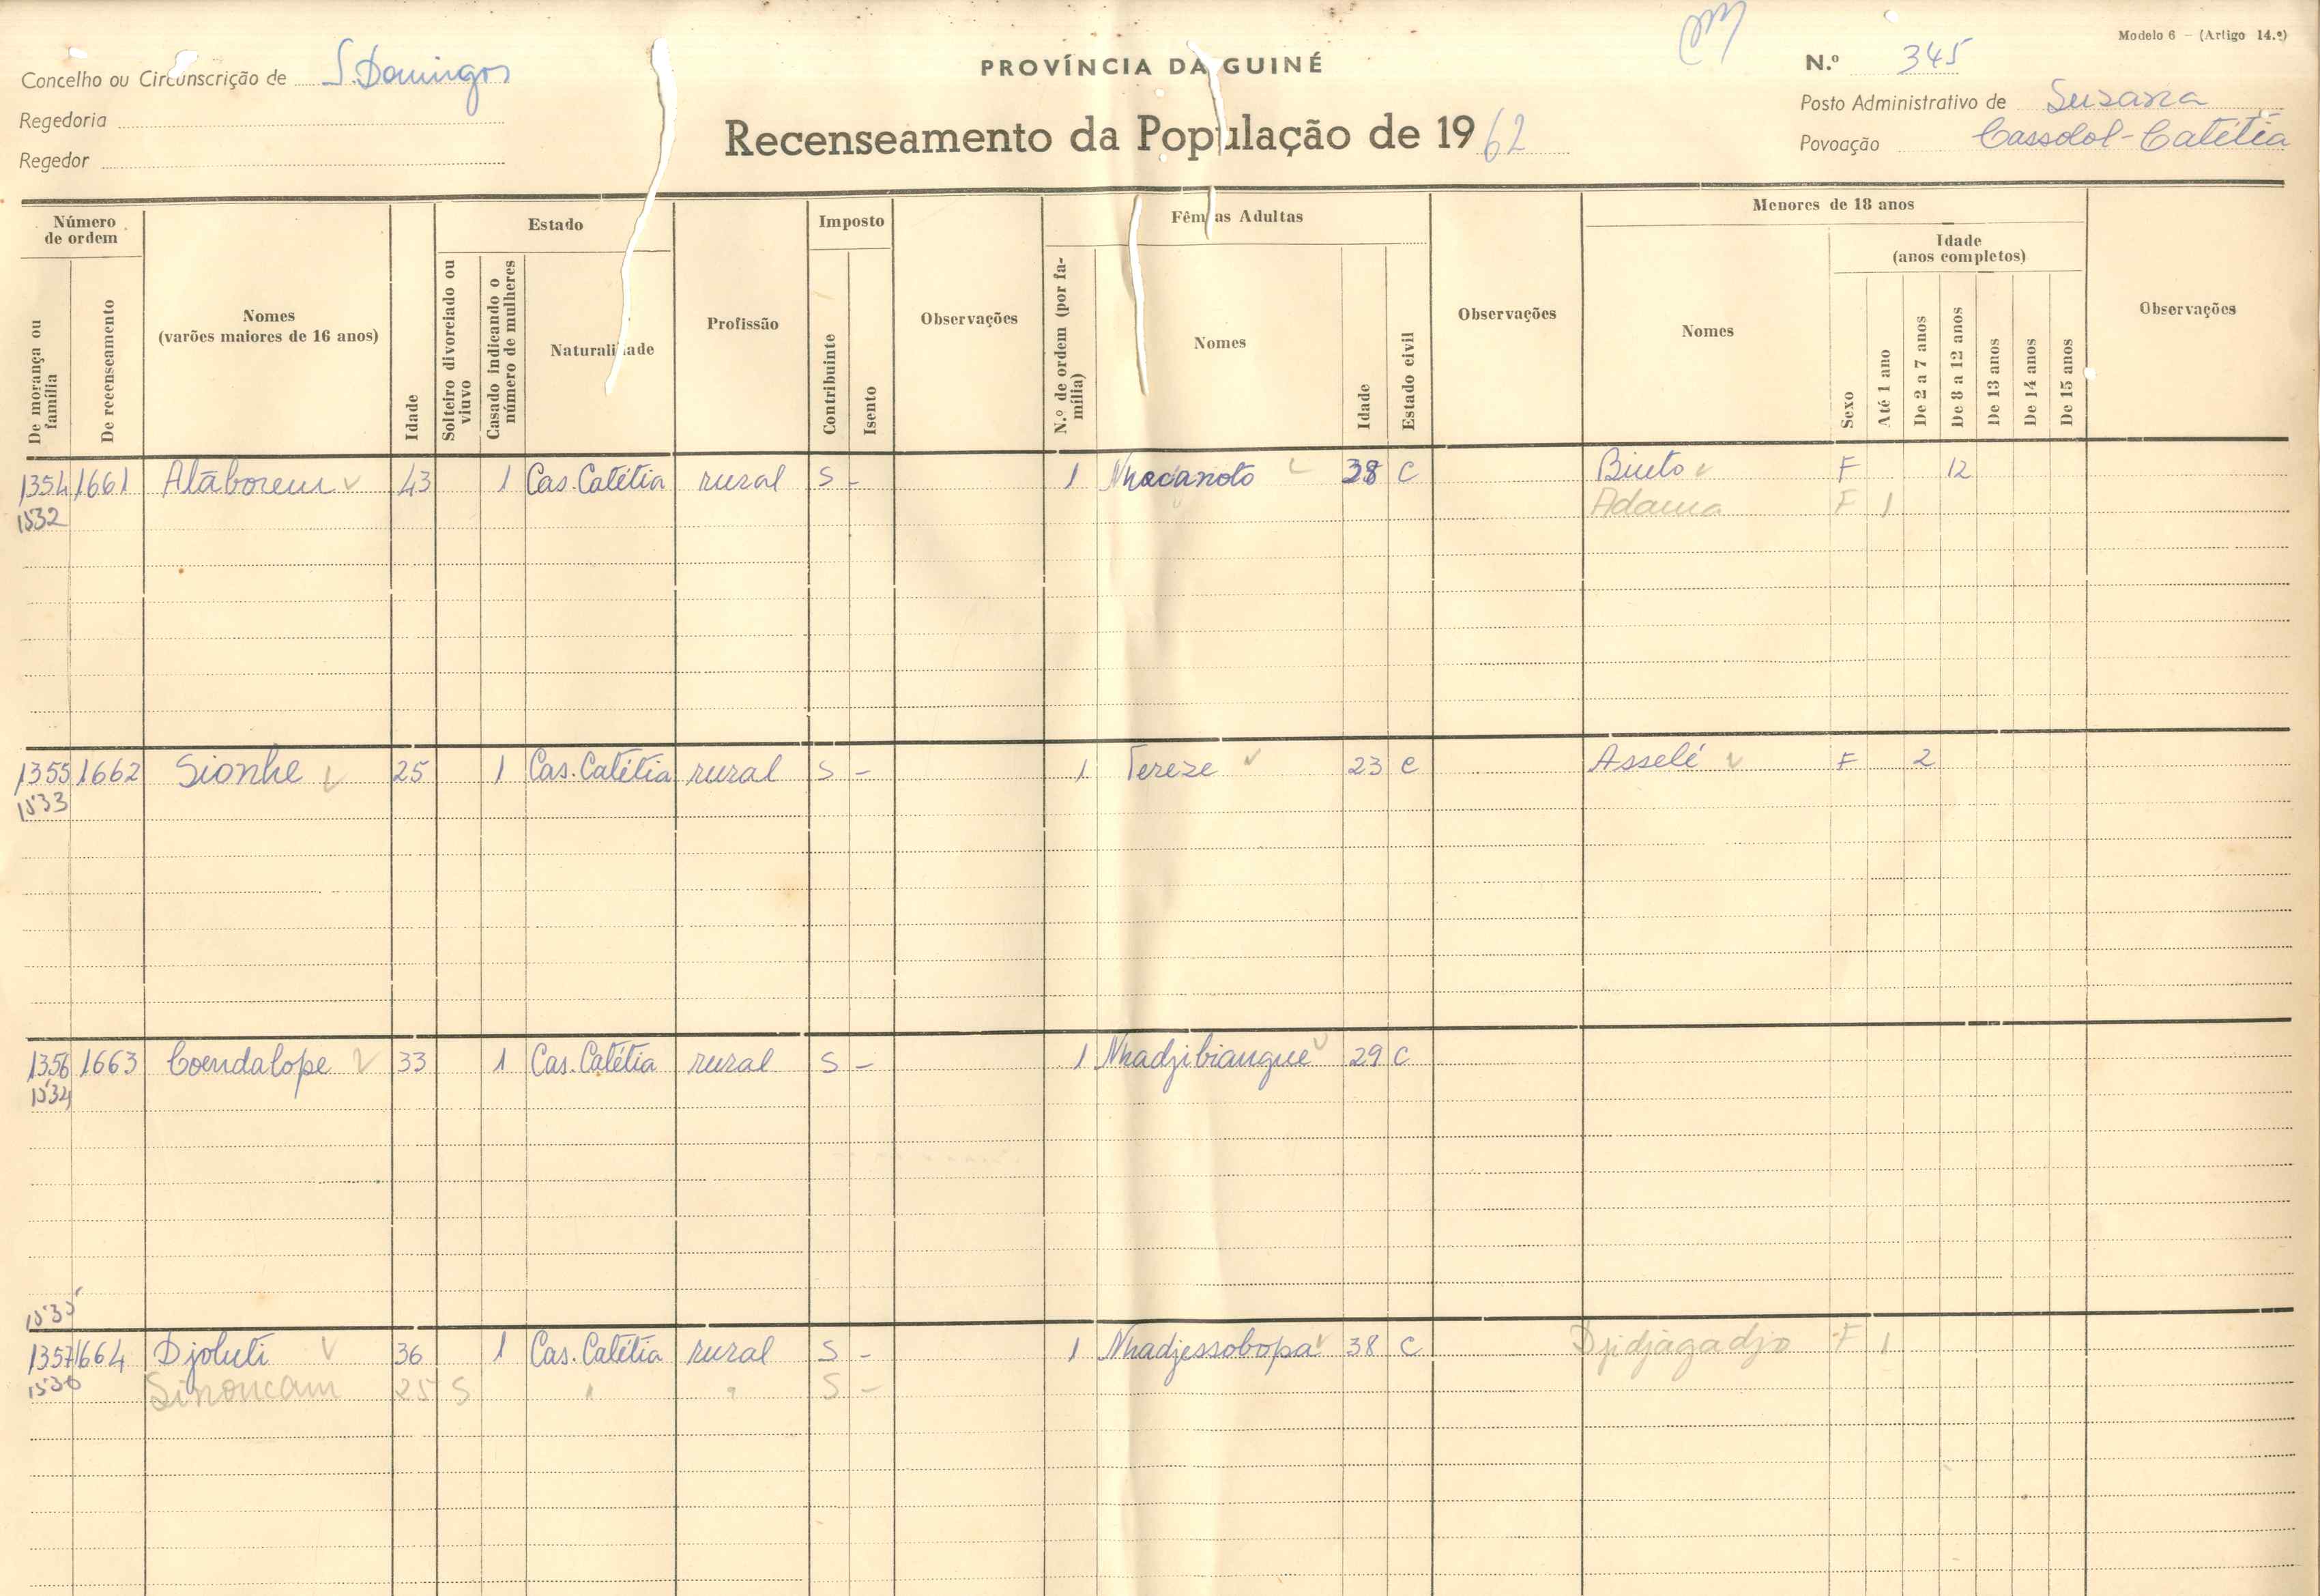 Modelo 6 — (Artigo 14.º)
Concelho ou Circunscrição de S. Domingos
PROVÍNCIA DA GUINÉ
N.º 345
Regedoria
Recenseamento da População de 1962
Posto Administrativo de Suzana
Regedor
Povoação Cassolol-Catétia
Número de ordem
De morança ou família
De recenseamento
Nomes
(varões maiores de 16 anos)
Idade
Estado
Solteiro divorciado ou viuvo
Casado indicando o número de mulheres
Naturalidade
Profissão
Imposto
Contribuinte
Isento
Observações
Fêmeas Adultas
N.º de ordem (por família)
Nomes
Idade
Estado civil
Observações
Menores de 18 anos
Nomes
Sexo
Idade
(anos completos)
Até 1 ano
De 2 a 7 anos
De 8 a 12 anos
De 13 anos
De 14 anos
De 15 anos
Observações
1354 1661 Atãborem 43 1 Cas. Catétia rural S - 1 Nhacanoto 38 C Biuto F 12
1532 Adama F 1
1355 1662 Sionhe 25 1 Cas. Catétia rural S - 1 Tereze 23 C Asselé F 2
1533
1356 1663 Coendalope 33 1 Cas. Catétia rural S - 1 Nhadjibiangue 29 C
1534
1535
1357 1664 Djoluti 36 1 Cas. Catétia rural S - 1 Nhadjessobopa 38 C Djidjagadjo F 1
1536 Sinoncam 25 S " " S -